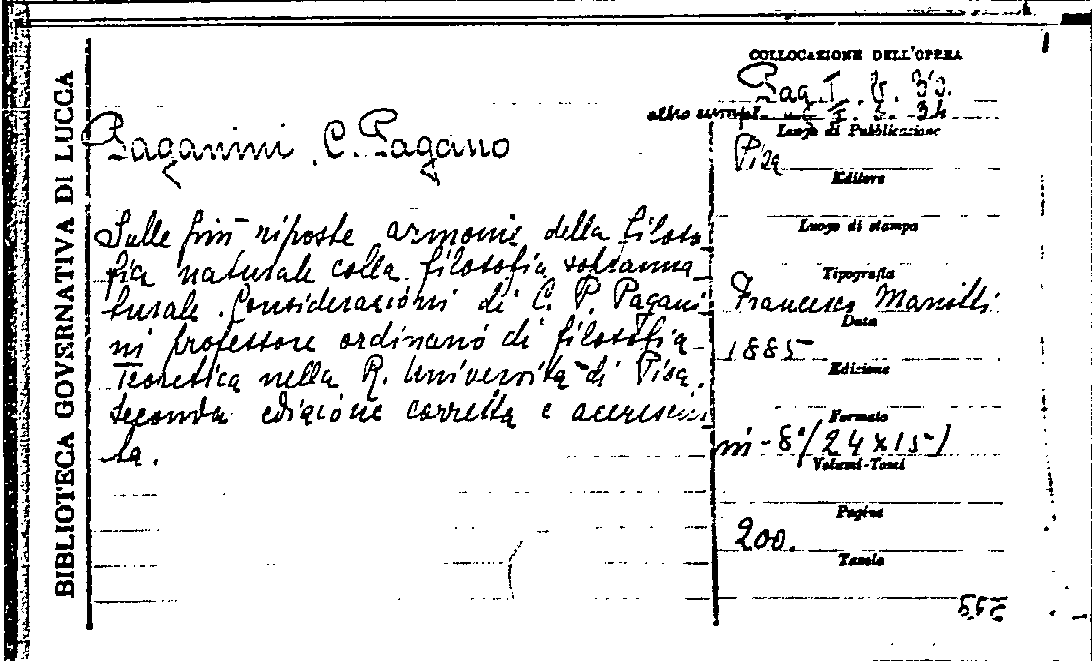 BIBLIOTECA GOVERNATIVA DI LUCCA
Paganini, C. Pagano
Sulle più riposte armonie della filoso
fia naturale colla filosofia sopranna
turale. Considerazioni di C. P. Pagani
ni professore ordinario di filosofia
Teoretica nella R. Università di Pisa.
Seconda edizione corretta e accresciu
ta.
COLLOCAZIONE DELL'OPERA
Pag. I. 33.
Luogo di Pubblicazione
Pisa
Editore
Luogo di stampa
Tipografia
Francesco Mariotti
Data
1885
Edizione
Formato
in-8° (24x15)
Volumi-Tomi
Pagine
200.
Tavole